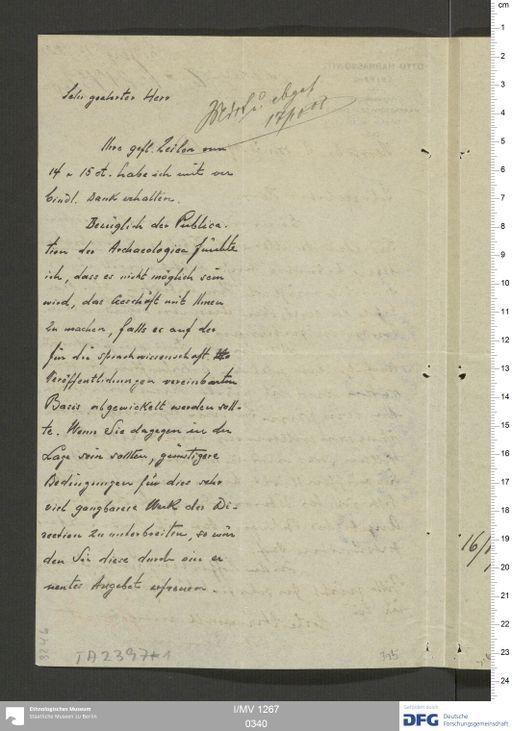 Sehr geehrter Herr
17/10 03
Ihre gefl. Zeilen vom
14 u 15 ct. habe ich mit ver
bindl. Dank erhalten.
Bezüglich der Publica-
tion der Archaeologica fürchte
ich, dass es nicht möglich sein
wird, das Geschäft mit Ihnen
zu machen, falls es auf der
für die sprachwissenschaftl.
Veröffentlichungen vereinbarten
Basis abgewickelt werden soll-
te. Wenn Sie dagegen in der
Lage sein sollten, günstigere
Bedingungen für dies sehr
viel gangbarere Werk der Di-
rection zu unterbreiten, so wür
den Sie diese durch ein er
neutes Angebot erfreuen
TA 2397+1
395
16/
Ethnologisches Museum
Staatliche Museen zu Berlin
I/MV 1267
0340
Gefördert durch
DFG Deutsche
Forschungsgemeinschaft
cm
1
2
3
4
5
6
7
8
9
10
11
12
13
14
15
16
17
18
19
20
21
22
23
24